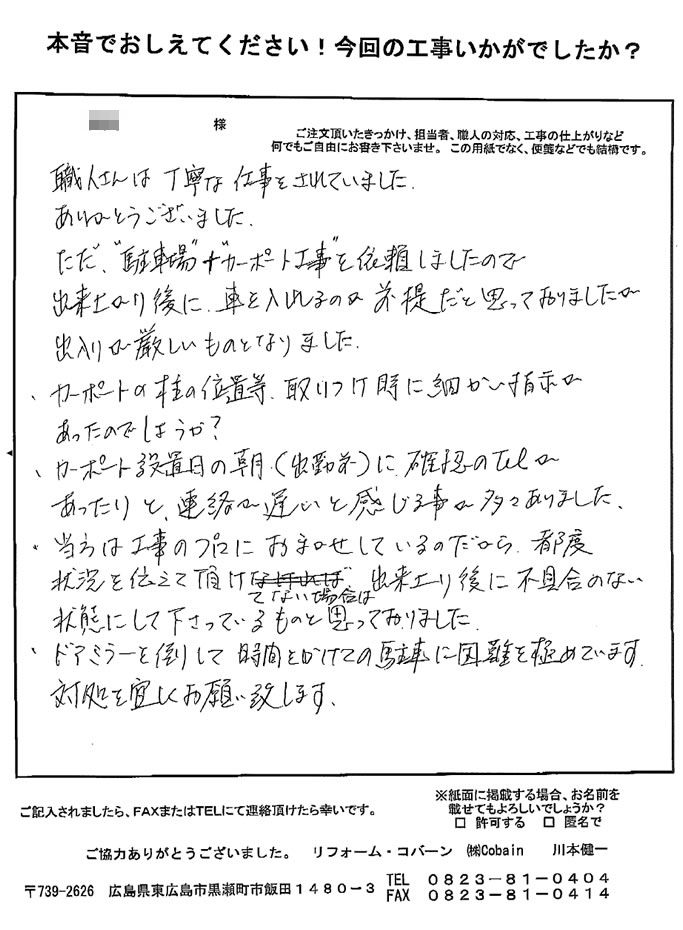 本音でおしえてください！今回の工事いかがでしたか？
様
ご注文頂いたきっかけ、担当者、職人の対応、工事の仕上がりなど
何でもご自由にお書き下さいませ。この用紙でなく、便箋などでも結構です。
職人さんは丁寧な仕事をされていました.
ありがとうございました.
ただ、"駐車場"+"カーポート工事"を依頼しましたので
出来上がり後に、車を入れるのが前提だと思っておりましたが
出入りが厳しいものとなりました.
、カーポートの柱の位置等、取りつけ時に細かい指示が
あったのでしょうか？
、カーポート設置日の朝（出勤前）に確認のTelが
あったりと、連絡が遅いと感じる事が多々ありました、
、当方は工事のプロにおまかせしているのだから、都度
状況を伝えて頂けなければ 出来上り後に不具合のない
てない場合は
状態にして下さっているものと思っておりました.
・ドアミラーを倒して時間をかけての駐車に困難を極めています.
対処を宜しくお願い致します、
ご記入されましたら、FAXまたはTELにて連絡頂けたら幸いです。
※紙面に掲載する場合、お名前を
載せてもよろしいでしょうか？
□ 許可する □ 匿名で
ご協力ありがとうございました。 リフォーム・コバーン ㈱Cobain 川本健一
〒739-2626 広島県東広島市黒瀬町市飯田１４８０－３
TEL ０８２３－８１－０４０４
FAX ０８２３－８１－０４１４